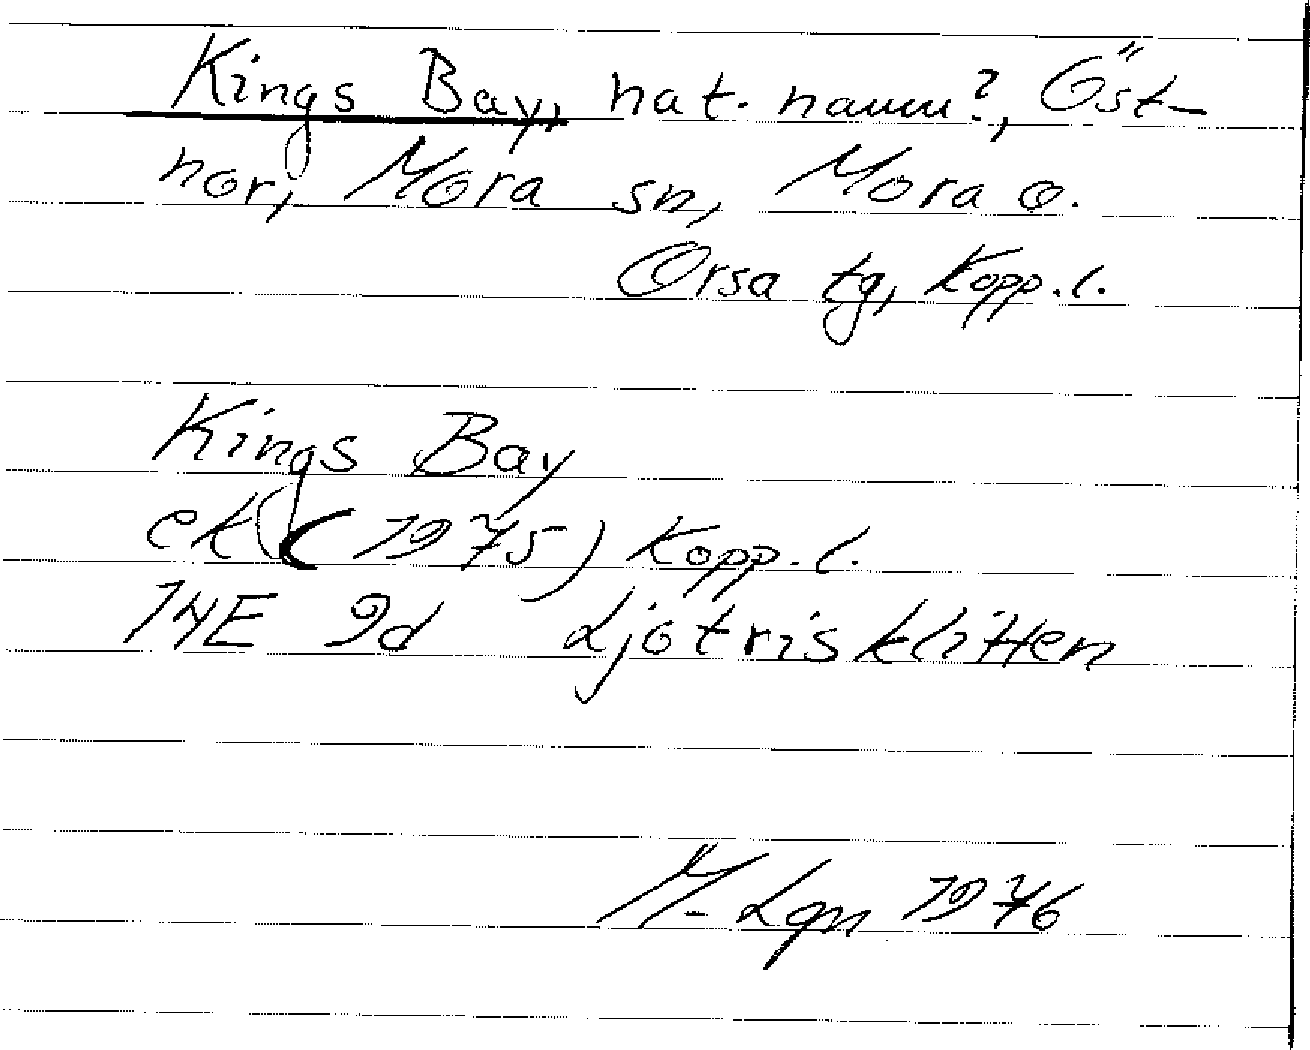 Kings Bay, nat. namn?, Öst-
nor, Mora sn, Mora o.
Orsa tg, Kopp. l.
Kings Bay
ek (1975) Kopp. l.
14E 9d Ljötrisklitten
M. Lgn 1976